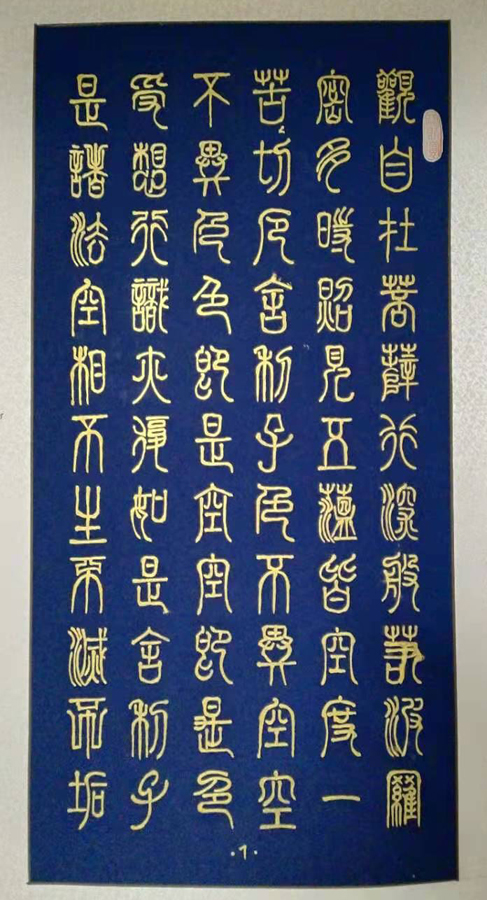 觀自在菩薩行深般若波羅
密多時照見五蘊皆空度一
苦切厄舍利子色不異空空
不異色色即是空空即是色
受想行識亦復如是舍利子
是諸法空相不生不滅不垢
·1·